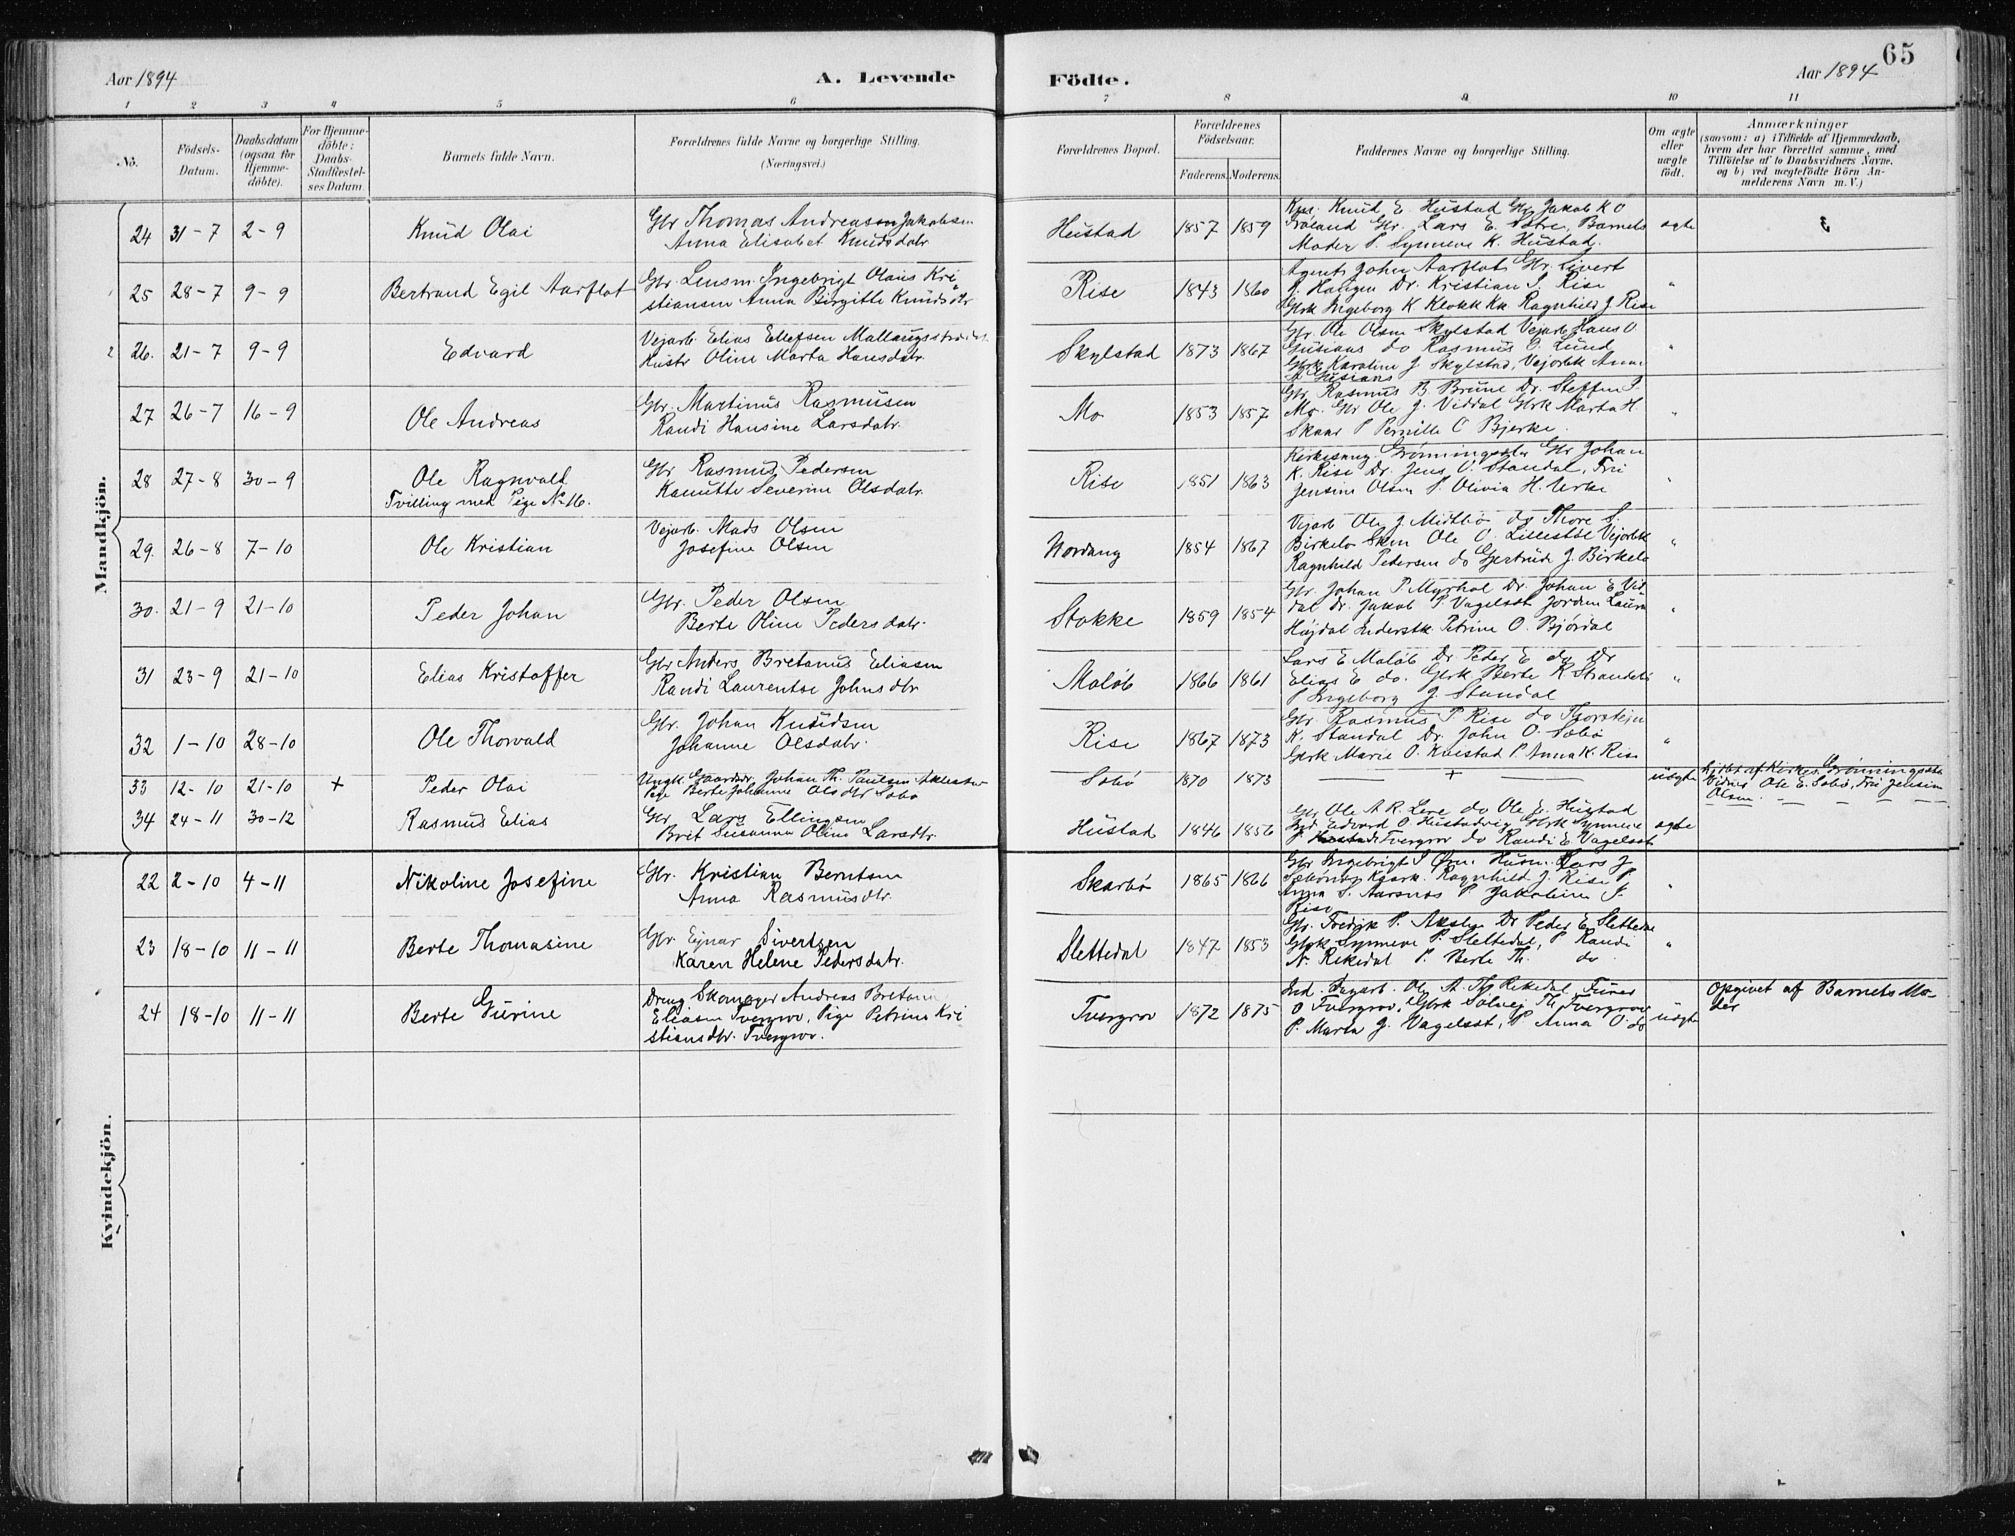 65
Aar 1894
A. Levende
Födte.
Aar 1894
1 2 3 4 5 6 7 8 9 10 11
No.
Födsels-
Datum.
Daabsdatum
(ogsaa for
Hjemme-
döbte).
For Hjemme-
döbte:
Daabs-
Stadfæstel-
ses Datum.
Barnets fulde Navn.
Forældrenes fulde Navne og borgerlige Stilling.
(Næringsvei.)
Forældrenes Bopæl.
Forældrenes
Födselsaar.
Faderens. Moderens.
Faddernes Navne og borgerlige Stilling.
Om ægte
eller
uægte
födt.
Anmærkninger
(saasom: a) i Tilfælde af Hjemmedaab,
hvem der har forrettet samme, med
Tilföielse af to Daabsvidners Navne,
og b) ved uægtefödte Börn An-
melderens Navn m. V.)
Mandkjön.
24 31-7 2-9 Knud Olai
Gbr Thomas Andreasen Jakobsen
Anna Elisabet Knudsdatr.
Hustad 1857 1859
Knud E Hustad Gbr Jakob K O
Gbr. Lars E. Barnets
Moder P. Synneve K. Hustad.
ægte
25 28-7 9-9 Bertrand Egil Aarflot
Gbr. Lensm. Ingebrigt Olaus Kri
stiansen Anna Birgitte Knudsdtr
Rise 1843 1860
Agent John Aarflot, Gbr. Sivert
J. Haugen Dr. Kristian S. Rise
Gbrk Ingeborg K Klokk Ragnhild J Rise
"
26. 21-7 9-9 Edvard
Vejarb. Elias Ellefsen
Hustr Oline Marta Hansdatr.
Skylstad 1873 1867
Gbr. Ole Olsen Skylstad Vejarb. Hans O
do Rasmus O. Hund
Gbrk Karoline J Skylstad, Vejarbk Anne
"
27 26-7 16-9 Ole Andreas
Gbr. Martinus Rasmusen
Randi Hansine Larsdatr.
Mo 1853 1857
Gbr. Rasmus B. Brune Dr. Steffen S.
Mo. Gbr Ole J. Viddal Gbrk Marta H.
Skaar P Pernille O Bjerke.
"
28 27-8 30-9 Ole Ragnvald
Tvilling med Pige N. 16.
Gbr. Rasmus Pedersen
Kanutte Severine Olsdatr.
Rise 1851 1863
Kirkesang. Grønningsæter Gbr Johan
K. Rise Dr. Jens O. Standal, Fru
Jensine Olsen P. Olivia H. Urke
"
29. 26-8 7-10 Ole Kristian
Vejarb. Mads Olsen
Josefine Olsen
Nordang 1854 1867
Vejarb Ole J Midtbø do Thore S
Birkelo Skm Ole O. Lillestøl Vejarbk
Ragnhild Pedersen do Gjertrud J. Birkelo
"
30. 21-9 21-10 Peder Johan
Gbr. Peder Olsen
Berte Oline Pedersdatr.
Stokke 1859 1854
Gbr. Johan P. Myrhol Dr. Johan E Vid
dal Dr. Jakob P. Vagelsæt Jordm Laura
Højdal Inderstk Petrine O. Bjørdal
"
31 23-9 21-10 Elias Kristoffer
Gbr Anders Bretanus Eliasen
Randi Laurentse Johnsdtr
Maløb 1866 1861
Lars E Maløb Dr. Peder E do Dr
Elias E do. Gbrk Berte R Strandeli
P Ingeborg J. Standal
"
32 1-10 28-10 Ole Thorvald
Gbr. Johan Knudsen
Johanne Olsdatr.
Rise 1867 1873
Gbr Rasmus P Rise do Thorstejn
K. Standal Dr. John O. Sæbø
Gbrk Marie O. Kvistad P. Anna K. Rise
"
33 12-10 21-10 + Peder Olai
Ungk. Gaardbr. Johan Th. Paulsen
Pige Berte Johanne Olsdtr Sæbø
Sæbø 1870 1873
+
uægte
Hj.døbt af Kirkes. Grønningsæter
Vidner Ole E. Sæbø, Fru Jensine
Olsen.
34 24-11 30-12 Rasmus Elias
Gbr. Lars Ellingsen
Brit Susanna Olina Larsdtr.
Hustad 1846 1856
Gbr Ole A R. do Ole E. Hustad
Edvard O. Hustadvig Gbrk Synneve
J. Tvergrov do Randi E Vagelsæt
ægte
Kvindekjön.
22 2-10 4-11 Nikoline Josefine
Gbr. Kristian Berntsen
Anna Rasmusdtr.
Skarbø 1865 1866
Gbr Ingebrigt S Øen. Husm. Lars J
Ragnhild J. Rise P.
Anna S. Aarsnes P Jakobine J.
Rise
"
23 18-10 11-11 Berte Thomasine
Gbr. Ejnar Sivertsen
Karen Helene Pedersdatr.
Slettedal 1847 1853
Gbr. Fredrik P. Aksly Dr Peder E Slettedal
Gbrk Synneve P. Slettedal, P Randi
N. Rekedal P. Berte Th. do
"
24 18-10 11-11 Berte Gurine
Dreng Skomager Andreas Bretan
Eliasen Tvergrov, Pige Petrine Kri
stiansdtr. Tvergrov.
Tvergrov 1872 1875
Ind. Fagarb. Ole A. Th Rekedal
O Tvergrov, Gbrk Solvej Th. Tvergrov
P. Marta J. Vagelsæt, P Anna O. do
uægte
Opgivet af Barnets Mo-
der